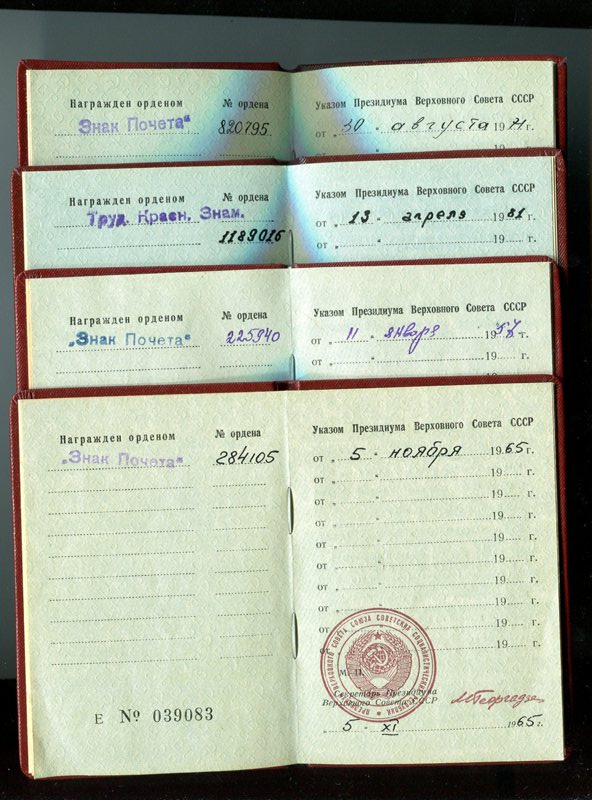 Награжден орденом № ордена Указом Президиума Верховного Совета СССР
„Знак Почета“ 820795 от „ 30 “ августа 1971 г.
от „ “ 19
Награжден орденом № ордена Указом Президиума Верховного Совета СССР
Труд. Красн. Знам. от „ 13 “ апреля 1981 г.
1189016 от „ “ 19 г.
Награжден орденом № ордена Указом Президиума Верховного Совета СССР
„Знак Почета“ 225940 от „ 11 “ января 1957 г.
от „ “ 19 г.
Награжден орденом № ордена Указом Президиума Верховного Совета СССР
„Знак Почета“ 284105 от „ 5 “ ноября 1965 г.
от „ “ 19 г.
от „ “ 19 г.
от „ “ 19 г.
от „ “ 19 г.
от „ “ 19 г.
от „ “ 19 г.
от „ “ 19 г.
от „ “ 19 г.
от „ “ 19 г.
М. П.
Секретарь Президиума
Верховного Совета СССР
Е № 039083
„ 5 “ XI 1965 г.